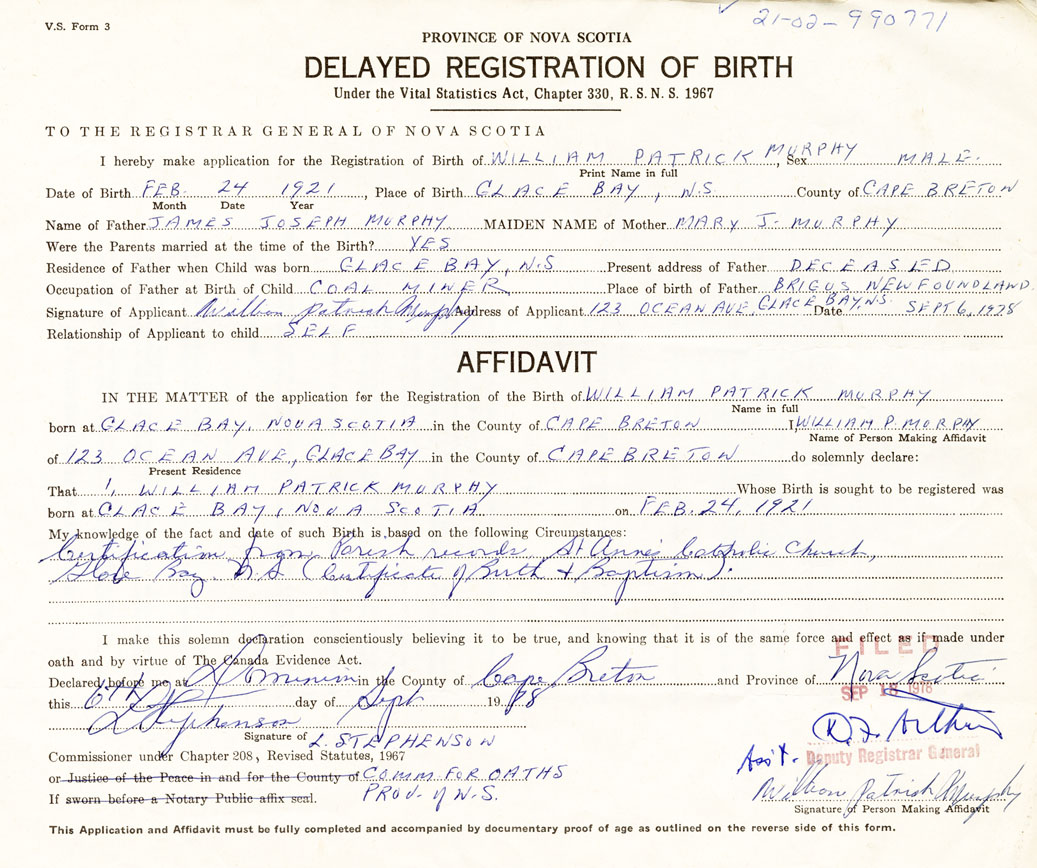 V.S. Form 3
21-02-990771
PROVINCE OF NOVA SCOTIA
DELAYED REGISTRATION OF BIRTH
Under the Vital Statistics Act, Chapter 330, R.S.N.S. 1967
TO THE REGISTRAR GENERAL OF NOVA SCOTIA
I hereby make application for the Registration of Birth of WILLIAM PATRICK MURPHY, Sex MALE.
Print Name in full
Date of Birth FEB. 24 1921, Place of Birth GLACE BAY, N.S. County of CAPE BRETON
Month Date Year
Name of Father JAMES JOSEPH MURPHY MAIDEN NAME of Mother MARY J. MURPHY
Were the Parents married at the time of the Birth? YES
Residence of Father when Child was born GLACE BAY, N.S Present address of Father DECEASED
Occupation of Father at Birth of Child COAL MINER Place of birth of Father BRIGUS NEWFOUNDLAND.
Signature of Applicant William Patrick Murphy Address of Applicant 123 OCEAN AVE, GLACE BAY N.S. Date SEPT 6, 1978
Relationship of Applicant to child SELF
AFFIDAVIT
IN THE MATTER of the application for the Registration of the Birth of WILLIAM PATRICK MURPHY
Name in full
born at GLACE BAY, NOVA SCOTIA in the County of CAPE BRETON I, WILLIAM P. MURPHY
Name of Person Making Affidavit
of 123 OCEAN AVE, GLACE BAY in the County of CAPE BRETON do solemnly declare:
Present Residence
That I, WILLIAM PATRICK MURPHY Whose Birth is sought to be registered was
born at GLACE BAY, NOVA SCOTIA on FEB. 24, 1921
My knowledge of the fact and date of such Birth is based on the following Circumstances:
Certification from Parish records St Anne's Catholic Church,
Glace Bay. N.S (Certificate of Birth & Baptism).
I make this solemn declaration conscientiously believing it to be true, and knowing that it is of the same force and effect as if made under
FILED
oath and by virtue of The Canada Evidence Act.
Declared before me at Dominion in the County of Cape Breton and Province of Nova Scotia
this 6th day of Sept 1978
SEP 18 1978
L Stephenson
Signature of L. STEPHENSON
Commissioner under Chapter 208, Revised Statutes, 1967
Ass't. Deputy Registrar General
or Justice of the Peace in and for the County of COMM. FOR OATHS
If sworn before a Notary Public affix seal. PROV. of N.S.
William Patrick Murphy
Signature of Person Making Affidavit
This Application and Affidavit must be fully completed and accompanied by documentary proof of age as outlined on the reverse side of this form.